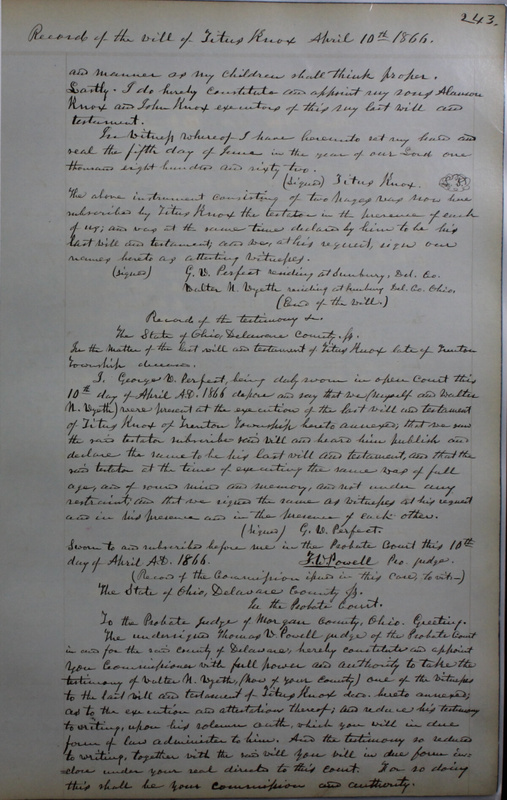 243.
Record of the will of Titus Knox April 10th 1866.
and manner as my children shall think proper.
Lastly. I do hereby constitute and appoint my sons Alanson
Knox and John Knox executors of this my last will and
testament.
In Witness whereof I have hereunto set my hand and
seal the fifth day of June in the year of our Lord one
thousand eight hundred and sixty two.
(Signed) Titus Knox.
The above instrument consisting of two pages was now here
subscribed by Titus Knox the testator in the presence of each
of us; and was at the same time declared by him to be his
last will and testament; and we, at his request, sign our
names hereto as attesting witnesses.
(Signed) G. V. Perfect residing at Sunbury, Del. Co.
Walter N. Wyeth residing at Sunbury Del. Co. Ohio.
(End of the will.)
Record of the testimony &c.
The State of Ohio, Delaware County, ss.
In the Matter of the last will and testament of Titus Knox late of Trenton
Township deceased.
I, George V. Perfect, being duly sworn in open Court this
10th day of April A.D. 1866 depose and say that we (Myself and Walter
N. Wyeth) were present at the execution of the last will and testament
of Titus Knox of Trenton Township hereto annexed; that we saw
the said testator subscribe said will and heard him publish and
declare the same to be his last will and testament, and that the
said testator at the time of executing the same was of full
age, and of sound mind and memory, and not under any
restraint; and that we signed the same as witnesses at his request
and in his presence and in the presence of each other.
(Signed) G. V. Perfect
Sworn to and subscribed before me in the Probate Court this 10th
day of April A.D. 1866. Powell Pro. judge.
(Record of the Commission issued in this case, to wit:-)
The State of Ohio, Delaware County ss.
In the Probate Court.
To the Probate Judge of Morgan County, Ohio. Greeting.
The undersigned Thomas W. Powell judge of the Probate Court
in and for the said county of Delaware, hereby constitute and appoint
you Commissioner with full power and authority to take the
testimony of Walter N. Wyeth, (Now of your County) one of the witnesses
to the last will and testament of Titus Knox dec. hereto annexed;
as to the execution and attestation thereof; and reduce his testimony
to writing, upon his solemn oath, which you will in due
form of law administer to him. And the testimony so reduced
to writing, together with the said will you will in due form in-
close under your seal directed to this court. For so doing
this shall be your commission and authority.